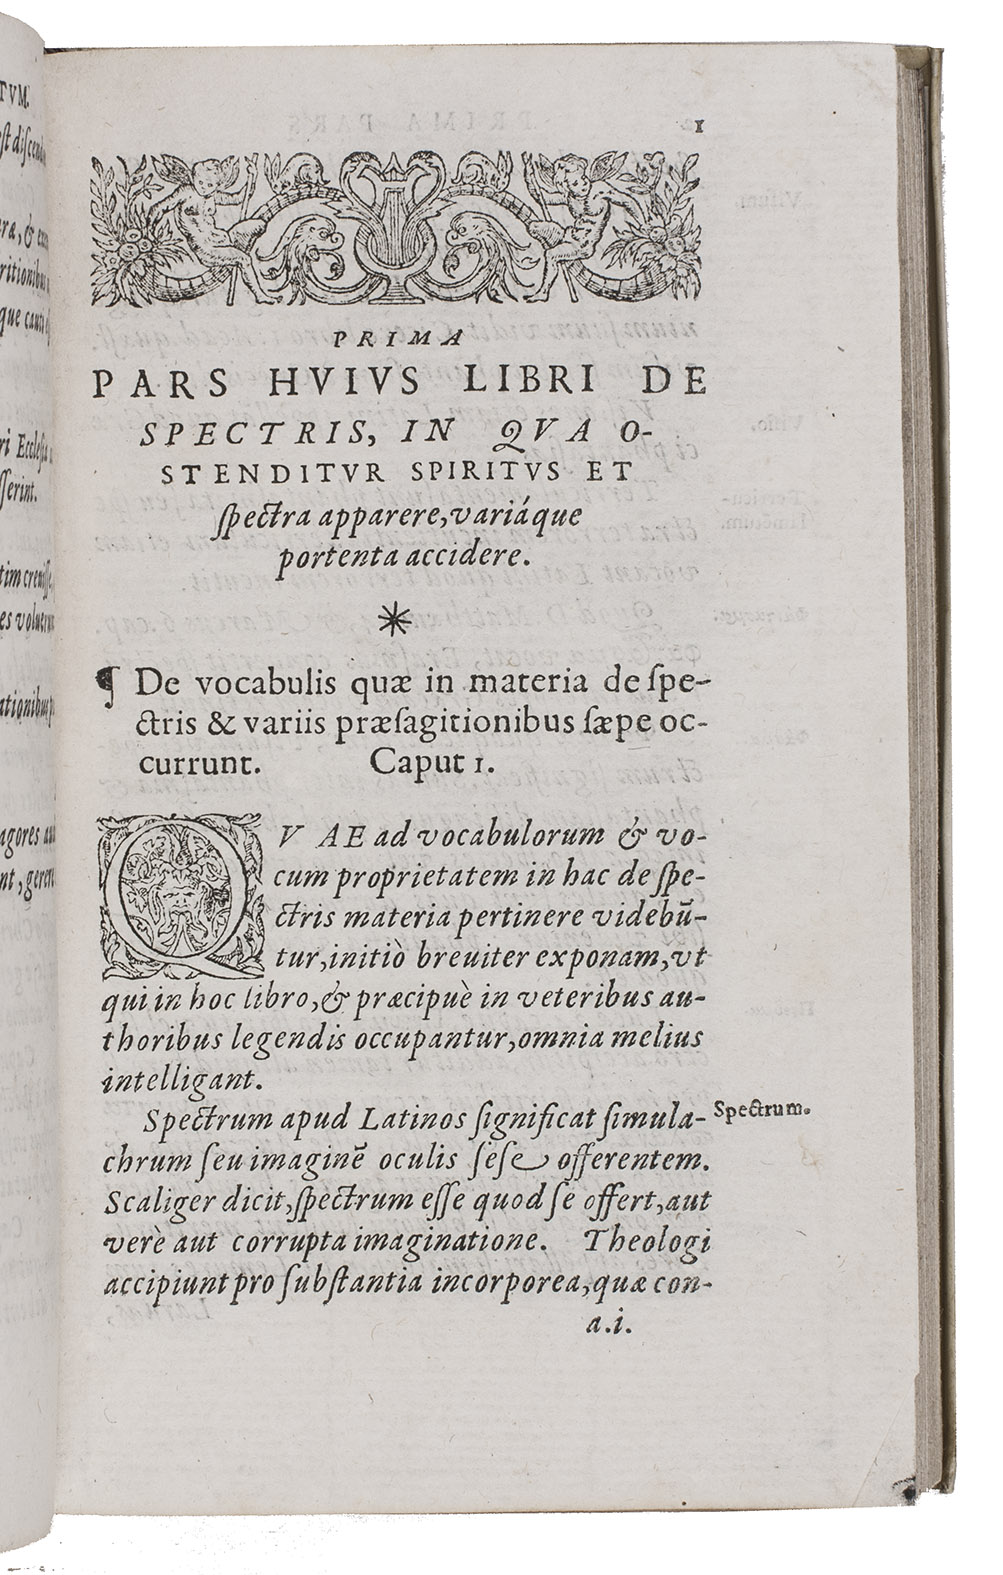 TVM.
1
PRIMA
PARS HVIVS LIBRI DE
SPECTRIS, IN QVA O-
STENDITVR SPIRITVS ET
ſpectra apparere, variáque
portenta accidere.
*
¶ De vocabulis quæ in materia de ſpe-
ctris & variis præſagitionibus ſæpe oc-
currunt. Caput 1.
QVAE ad vocabulorum & vo-
cum proprietatem in hac de ſpe-
ctris materia pertinere videbũ-
tur, initiò breuiter exponam, vt
qui in hoc libro, & præcipuè in veteribus au-
thoribus legendis occupantur, omnia melius
intelligant.
Spectrum apud Latinos ſignificat ſimula- Spectrum.
chrum ſeu imaginẽ oculis ſeſe offerentem.
Scaliger dicit, ſpectrum eſſe quod ſe offert, aut
verè aut corrupta imaginatione. Theologi
accipiunt pro ſubſtantia incorporea, quæ con-
a.i.